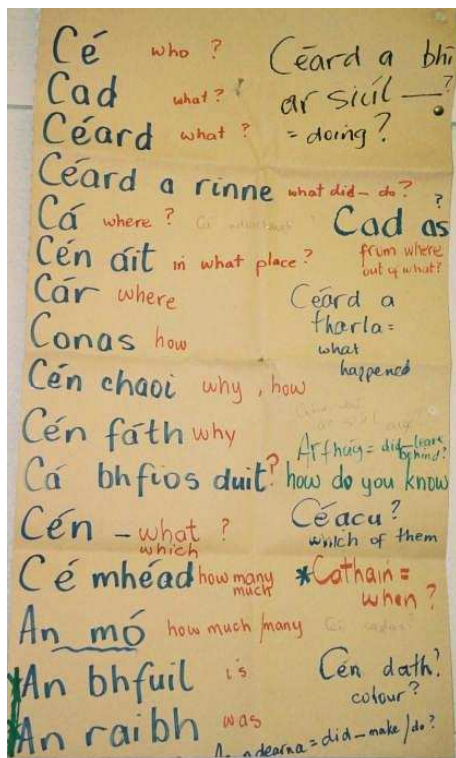 Cé who?
Cad what?
Céard what?
Céard a rinne what did - do?
Cá where?
Cén áit in what place?
Cár where
Conas how
Cén chaoi why, how
Cén fáth why
Cá bhfios duit? how do you know
Cén - what?
which
Cé mhéad how many
much
An mó how much/many
An bhfuil is
An raibh was
Céard a bhí
ar siúil —?
= doing?
Cad as?
from where
out of what?
Céard a
tharla =
what
happened
Ar fhág = did - leave
behind?
Céacu?
which of them
*Cathain =
when?
Cén dath?
colour?
ndearna = did - make/do?